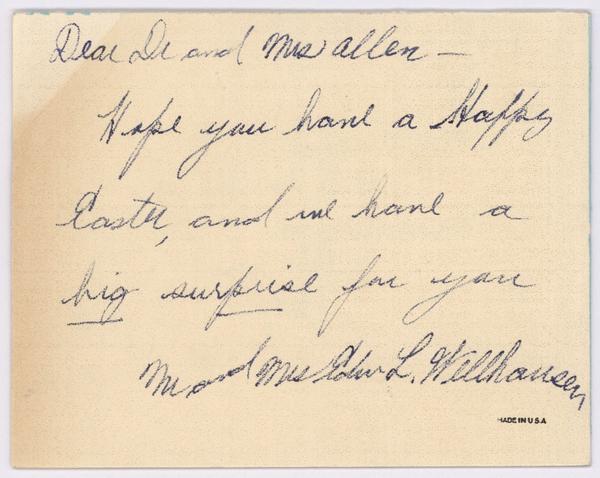 Dear Dr and Mrs Allen —
Hope you have a Happy
Easter, and we have a
big surprise for you
Mr and Mrs Edw L. Wellhausen
MADE IN U.S.A